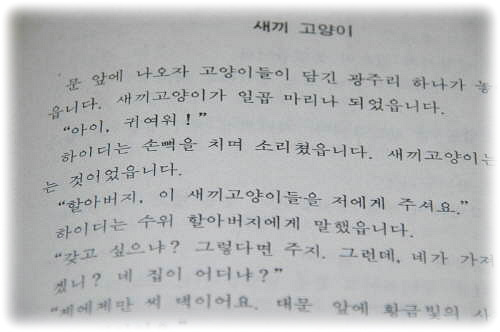 새끼 고양이
문 앞에 나오자 고양이들이 담긴 광주리 하나가 놓
읍니다. 새끼고양이가 일곱 마리나 되었읍니다.
“아이, 귀여워!”
하이디는 손뼉을 치며 소리쳤읍니다. 새끼고양이는
는 것이었읍니다.
“할아버지, 이 새끼고양이들을 저에게 주셔요.”
하이디는 수위 할아버지에게 말했읍니다.
“갖고 싶으냐? 그렇다면 주지. 그런데, 네가 가져
겠니? 네 집이 어디냐?”
“제에제만 씨 댁이어요. 대문 앞에 황금빛의 사